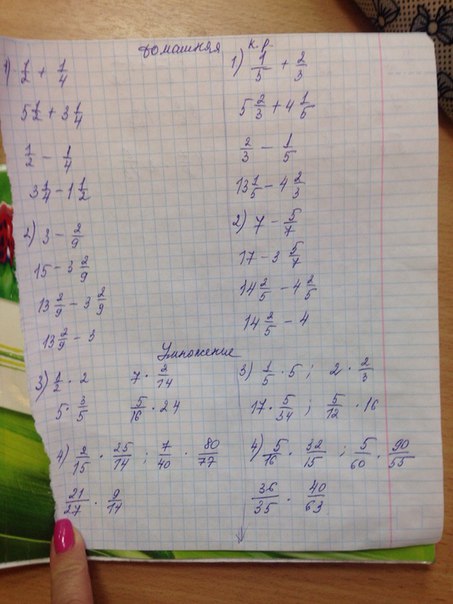 домашняя
1) 1/2 + 1/4
5 1/2 + 3 1/4
1/2 - 1/4
3 1/4 - 1 1/2
2) 3 - 2/9
15 - 3 2/9
13 2/9 - 3 2/9
13 2/9 - 3
к.р.
1) 1/5 + 2/3
5 2/3 + 4 1/5
2/3 - 1/5
13 1/5 - 4 2/3
2) 7 - 5/7
17 - 3 5/7
14 2/5 - 4 2/5
14 2/5 - 4
Умножение
3) 1/2 · 2    7 · 2/14
5 · 3/5    5/16 · 24
4) 2/15 · 25/14 ; 7/40 · 80/77
21/27 · 9/14
3) 1/5 · 5 ; 2 · 2/3
17 · 5/34 ; 5/12 · 16
4) 5/16 · 32/15 ; 5/60 · 90/55
36/35 · 40/63